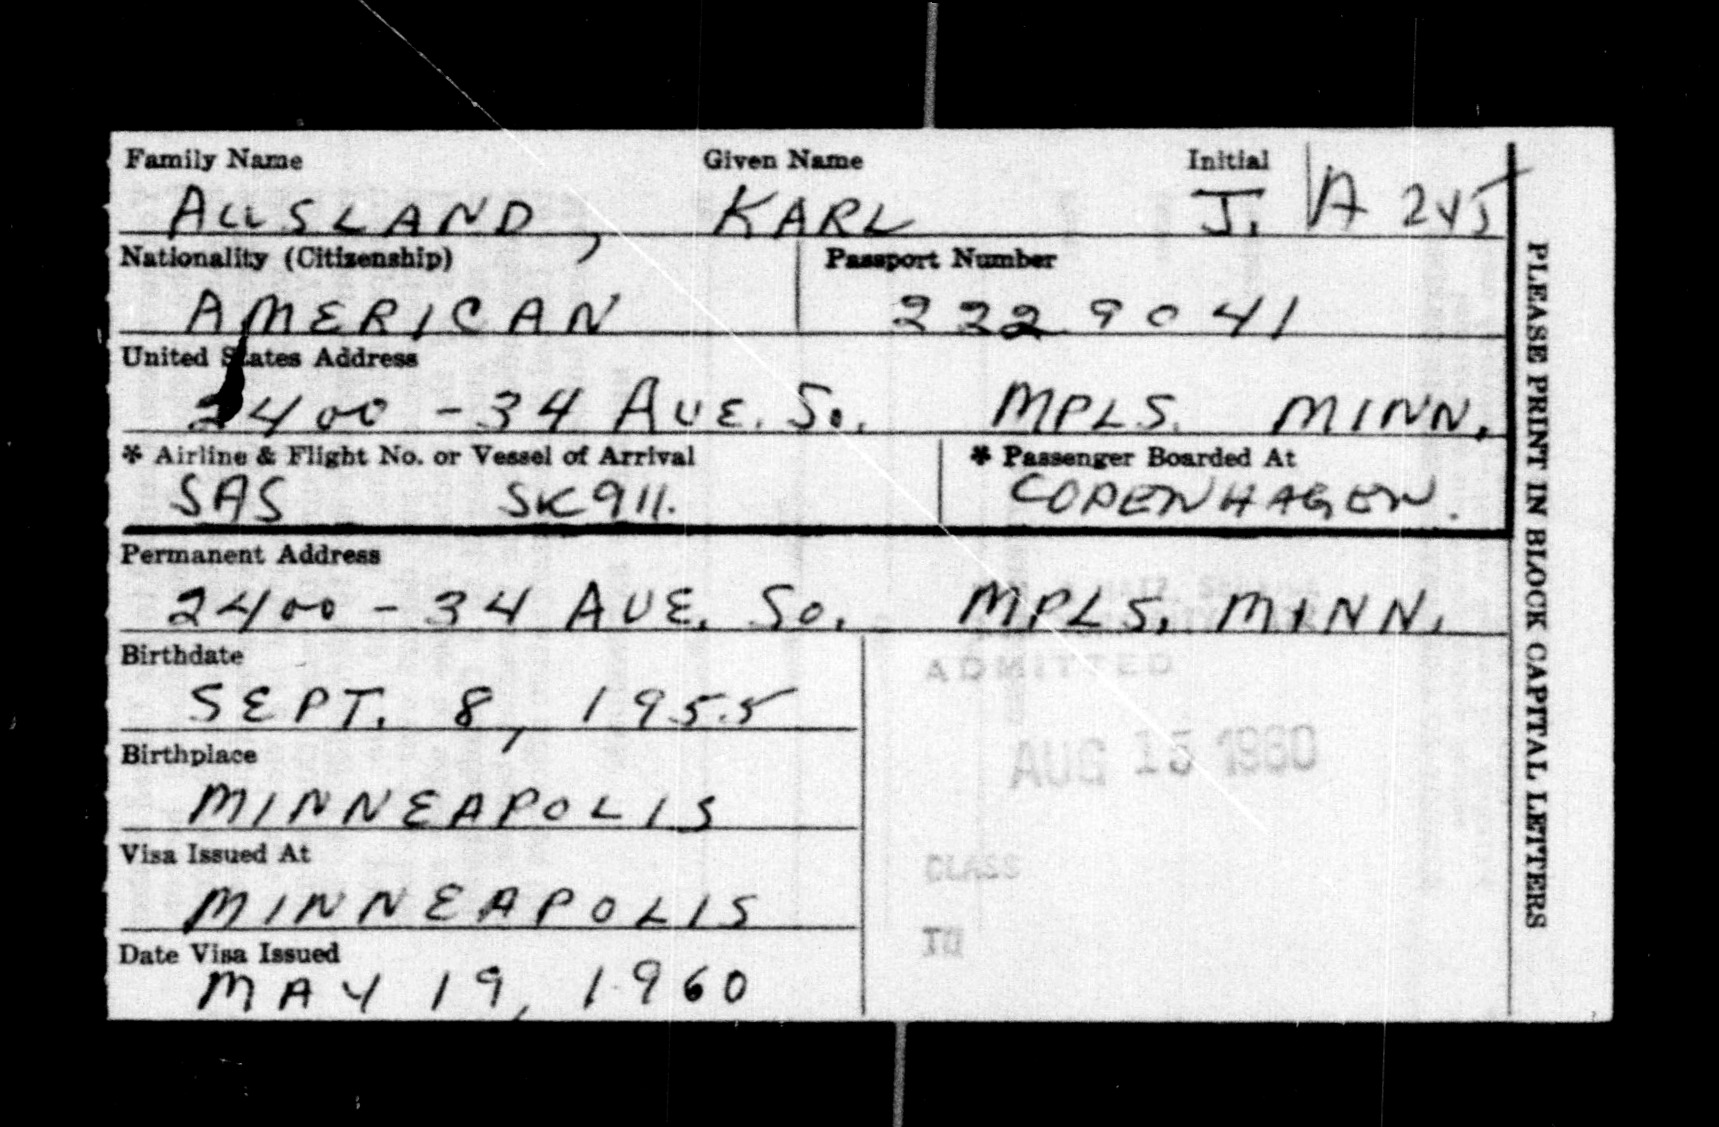 Family Name Given Name Initial
ALLSLAND, KARL J. A 245
Nationality (Citizenship) Passport Number
AMERICAN 2229041
United States Address
2400 - 34 AVE. So. MPLS. MINN.
* Airline & Flight No. or Vessel of Arrival * Passenger Boarded At
SAS SK911. COPENHAGEN.
Permanent Address
2400 - 34 AVE. So. MPLS. MINN.
Birthdate
SEPT. 8, 1955
ADMITTED
Birthplace
AUG 15 1960
MINNEAPOLIS
Visa Issued At
CLASS
MINNEAPOLIS
TO
Date Visa Issued
MAY 19, 1960
PLEASE PRINT IN BLOCK CAPITAL LETTERS